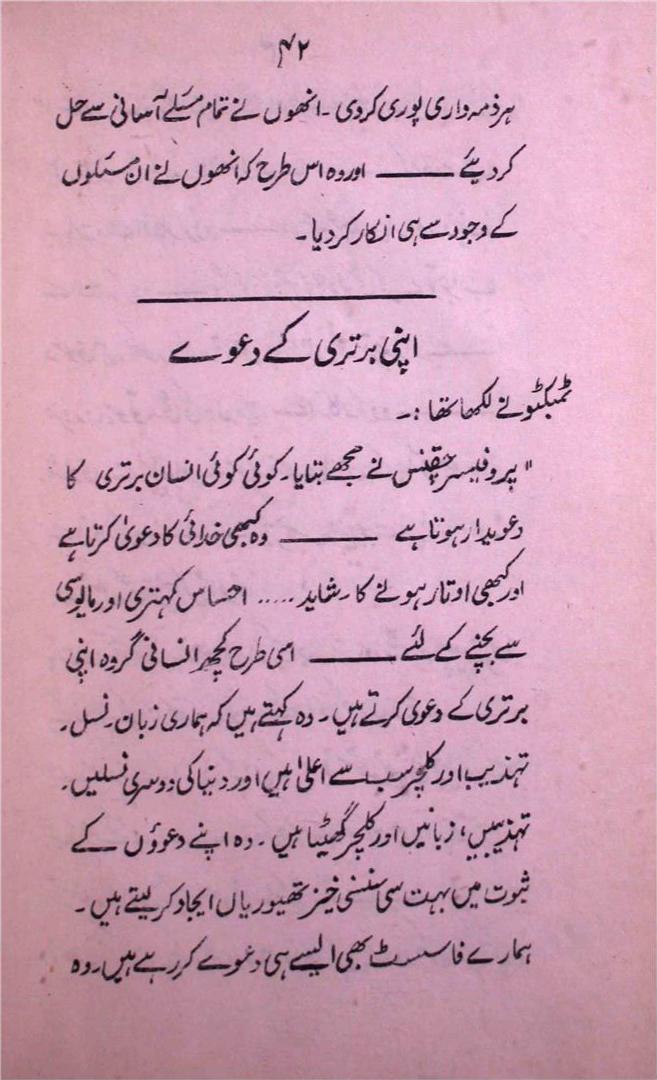 ۴۲
ہر ذمہ داری پوری کردی۔ انھوں نے تمام مسئلے آسانی سے حل
کر دیئے ——— اور وہ اس طرح کہ انھوں نے ان مسئلوں
کے وجود سے ہی انکار کر دیا۔
اپنی برتری کے دعوے
ٹمبکٹو نے لکھا تھا :۔
"پروفیسر چقنس نے مجھے بتایا۔ کوئی کوئی انسان برتری کا
دعویدار ہوتا ہے ——— وہ کبھی خدائی کا دعویٰ کرتا ہے
اور کبھی اوتار ہونے کا۔ شاید ..... احساس کہتری اور مایوسی
سے بچنے کے لئے ——— اسی طرح کچھ انسانی گروہ اپنی
برتری کے دعوی کرتے ہیں۔ وہ کہتے ہیں کہ ہماری زبان۔ نسل۔
تہذیب اور کلچر سب سے اعلیٰ ہیں اور دنیا کی دوسری نسلیں۔
تہذیبیں، زبانیں اور کلچر گھٹیا ہیں۔ وہ اپنے دعوؤں کے
ثبوت میں بہت سی سنسنی خیز تھیوریاں ایجاد کر لیتے ہیں۔
ہمارے فاسسٹ بھی ایسے ہی دعوے کر رہے ہیں۔ وہ